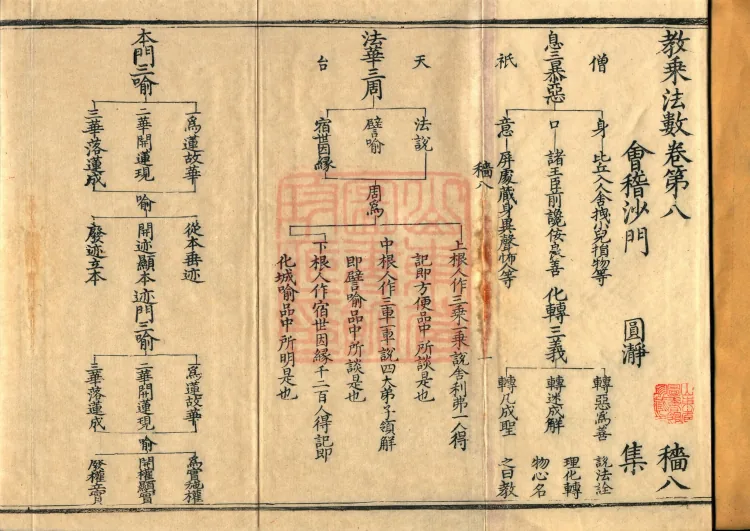 教乗法數卷第八
會稽沙門 圓瀞 集 穡八
息三暴惡
僧祇
身
比丘入舍拽小兒損物等
口
諸王臣前讒侫衰善
意
屏處藏身異聲怖人等
化轉三義
轉惡為善
轉迷成解
轉凡成聖
說法詮
理化轉
物心名
之曰教
穡八 一
法華三周
天台
法說
譬喻
宿世因縁
周爲
上根人作三乘一乘說舍利弗一人得
記即方便品中所談是也
中根人作三車一車說四大弟子領解
即譬喻品中所談是也
下根人作宿世因縁千二百人得記即
化城喻品中所明是也
本門三喻
爲蓮故華
二華開蓮現
三華落蓮成
喻
從本垂迹
開迹顯本
廢迹立本
迹門三喻
爲蓮故華
二華開蓮現
三華落蓮成
喻
爲實施權
開權顯實
廢權立實